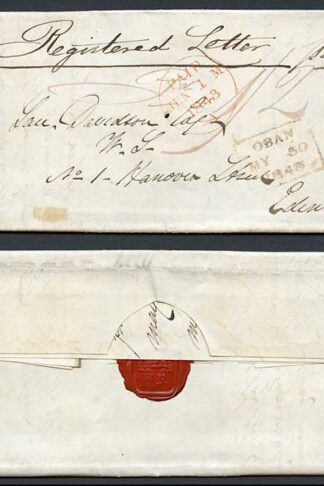 Registered Letter
PAID
1 M
1843
Davidson Esq
W. S.
No 1 Hanover Street
OBAN
MY 30
1843
Eden